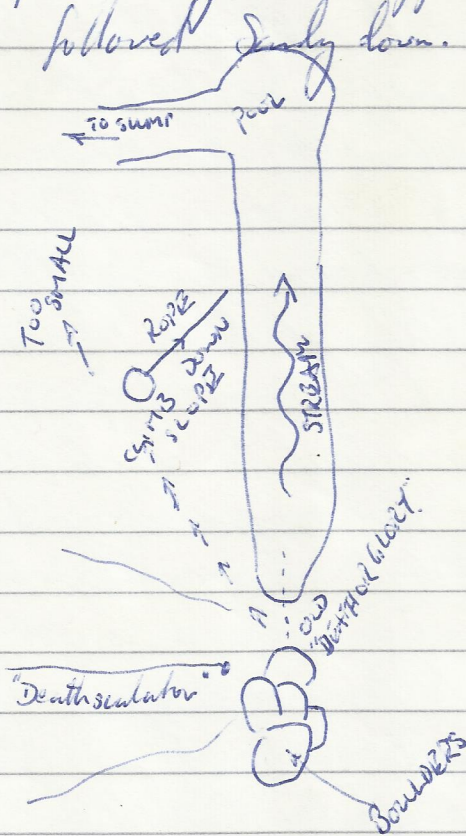 followed Sandy down.
POOL
TO SUMP
TOO
SMALL
ROPE
DOWN
CLIMB
SLOPE
STREAM
OLD
"DEATH OR GLORY"
"Deathscalator"
BOULDERS